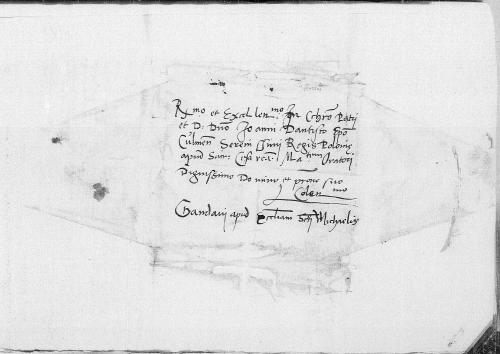 R mo et Excellen mo In Chro Patri
et D. Dno Joanni Dantisco Epo
Culmen Seren issimi Regis Polonie
apud Sac. Cesarea Ma tem Oratori
Dignissimo Domino et prono suo
Colen mo
Gandavi apud Eccliam Scti Michaelis